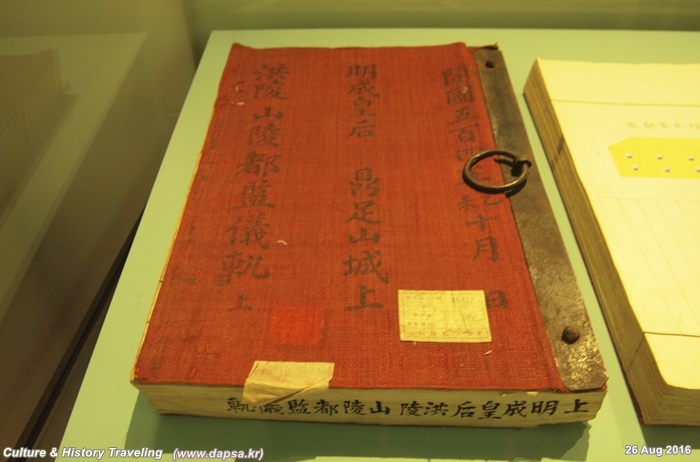 開國五百四 乙未十月 日
明成皇后 鼎足山城上
洪陵山陵都監儀軌 上
上明成皇后洪陵山陵都監儀軌
Culture & History Traveling (www.dapsa.kr)
26 Aug 2016